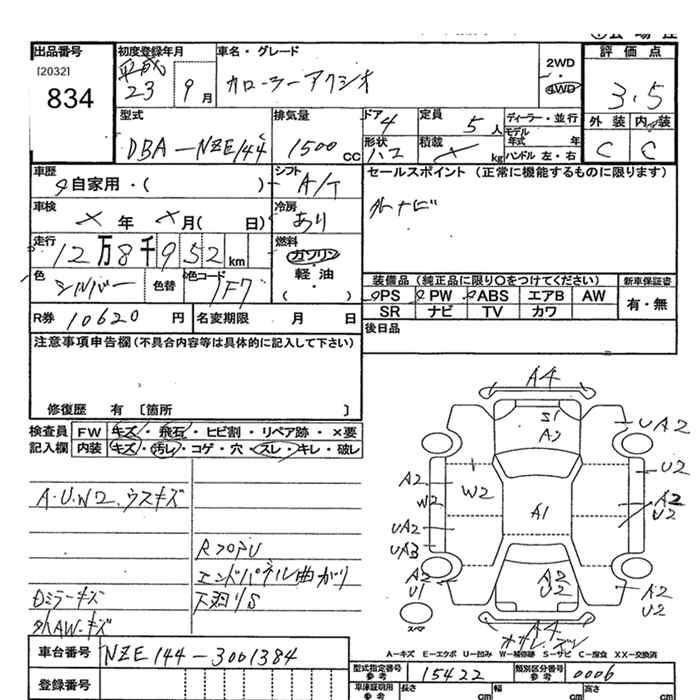 出品番号
[2032]
834
初度登録年月
平成 23 9 月
車名・グレード
カローラーアクシオ
2WD
・
4WD
評価点
3.5
外装 内装
C C
型式
DBA-NZE144
排気量
1500 cc
ドア 4
形状
ハコ
定員 5 人
積載 kg
ディーラー・並行
モデル年式 年
ハンドル 左・右
車歴
自家用・( )
シフト
A/T
セールスポイント(正常に機能するものに限ります)
外ナビ
車検
× 年 × 月( 日)
冷房
あり
走行
12 万 8 千 9 5 2 km
燃料
ガソリン
軽・油
・
( )
色
シルバー
色替
色コード
1F7
装備品(純正品に限り○をつけてください)
新車保証書
PS PW ABS エアB AW
有・無
SR ナビ TV カワ
R券 10620 円
名変期限 月 日
後日品
注意事項申告欄(不具合内容等は具体的に記入して下さい)
修復歴 有 〔箇所 〕
検査員 FW キズ・飛石・ヒビ割・リペア跡・×要
記入欄 内装 キズ・汚レ・コゲ・穴・スレ・キレ・破レ
A・U・W2、ウスキズ
エンドパネル曲がり
下廻りS
Dミラーキズ
外AW・キズ
A4
S1
A2
UA2
U2
A2
W2
W2
UA2
UA3
A1
A2
U2
A2
U1
A2
U2
A2
U2
A4
スペア
A-キズ E-エクボ U-凹み W-補修跡 S-サビ C-腐食 XX-交換済
車台番号 NZE144-3001384
登録番号
型式指定番号
参考
15422
類別区分番号
参考
0006
車庫証明用
参考
長さ cm 幅 cm 高さ cm